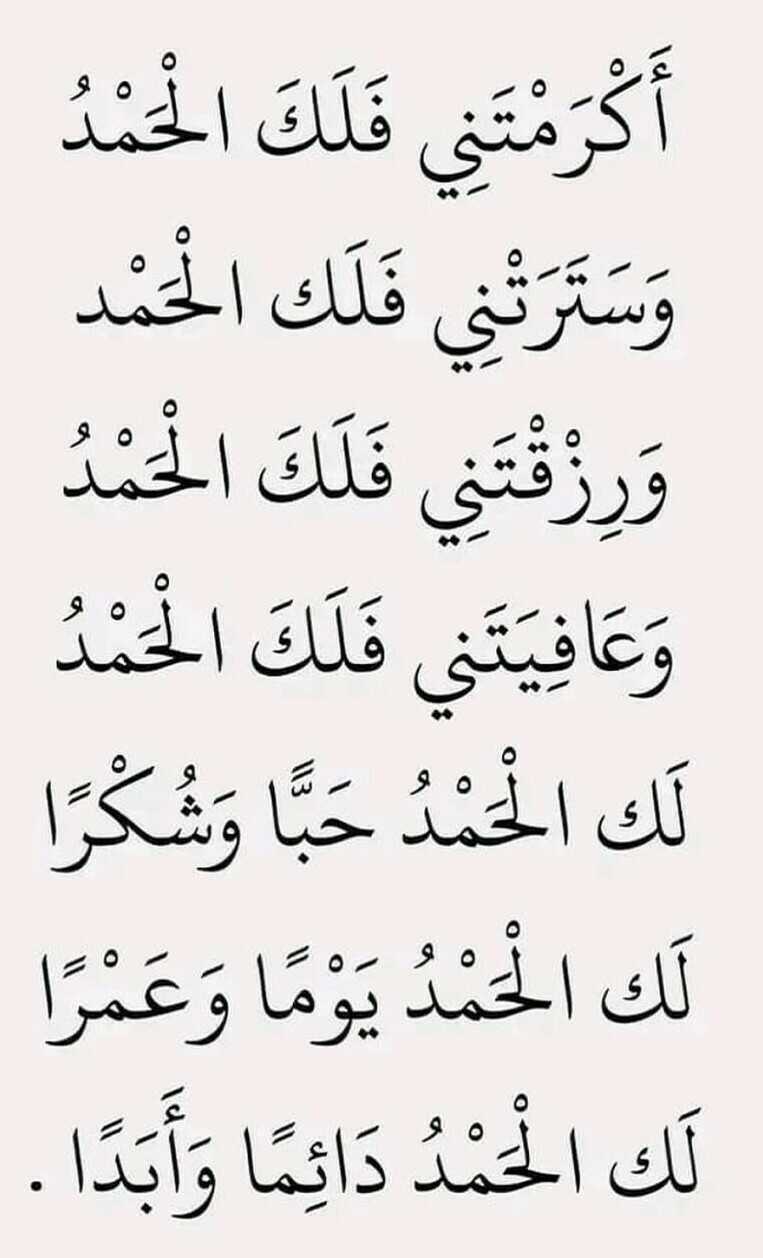 أَكْرَمْتَنِي فَلَكَ الْحَمْدُ
وَسَتَرَتْنِي فَلَك الْحَمْد
وَرِزْقْتَنِي فَلَكَ الْحَمْدُ
وَعَافِيَتَني فَلَكَ الْحَمْدُ
لَك الْحَمْدُ حَبًّا وَشُكْرًا
لَك الْحَمْدُ يَوْمًا وَعَمْرًا
لَك الْحَمْدُ دَائِمًا وَأَبَدًا .